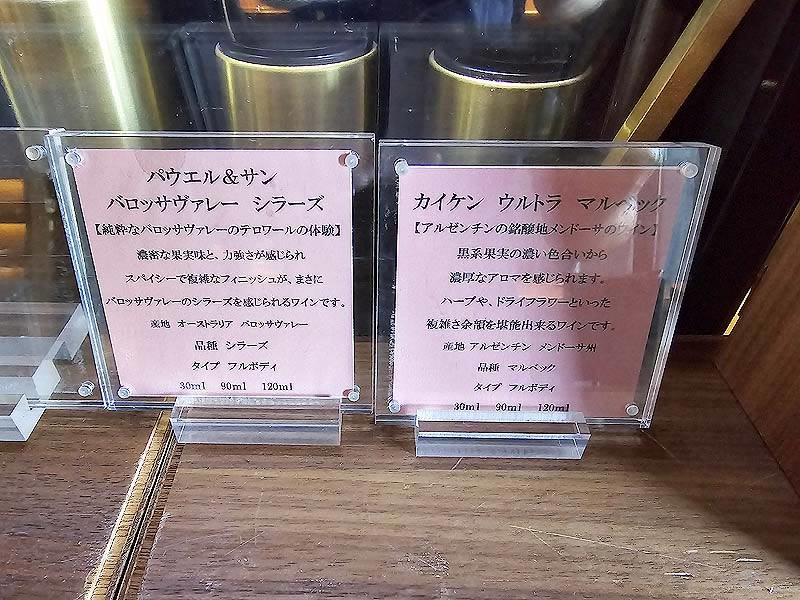 パウエル＆サン
バロッサヴァレー シラーズ
【純粋なバロッサヴァレーのテロワールの体験】
濃密な果実味と、力強さが感じられ
スパイシーで複雑なフィニッシュが、まさに
バロッサヴァレーのシラーズを感じられるワインです。
産地 オーストラリア バロッサヴァレー
品種 シラーズ
タイプ フルボディ
30ml 90ml 120ml
カイケン ウルトラ マルベック
【アルゼンチンの銘醸地メンドーサのワイン】
黒系果実の濃い色合いから
濃厚なアロマを感じられます。
ハーブや、ドライフラワーといった
複雑さ余韻を堪能出来るワインです。
産地 アルゼンチン メンドーサ州
品種 マルベック
タイプ フルボディ
30ml 90ml 120ml